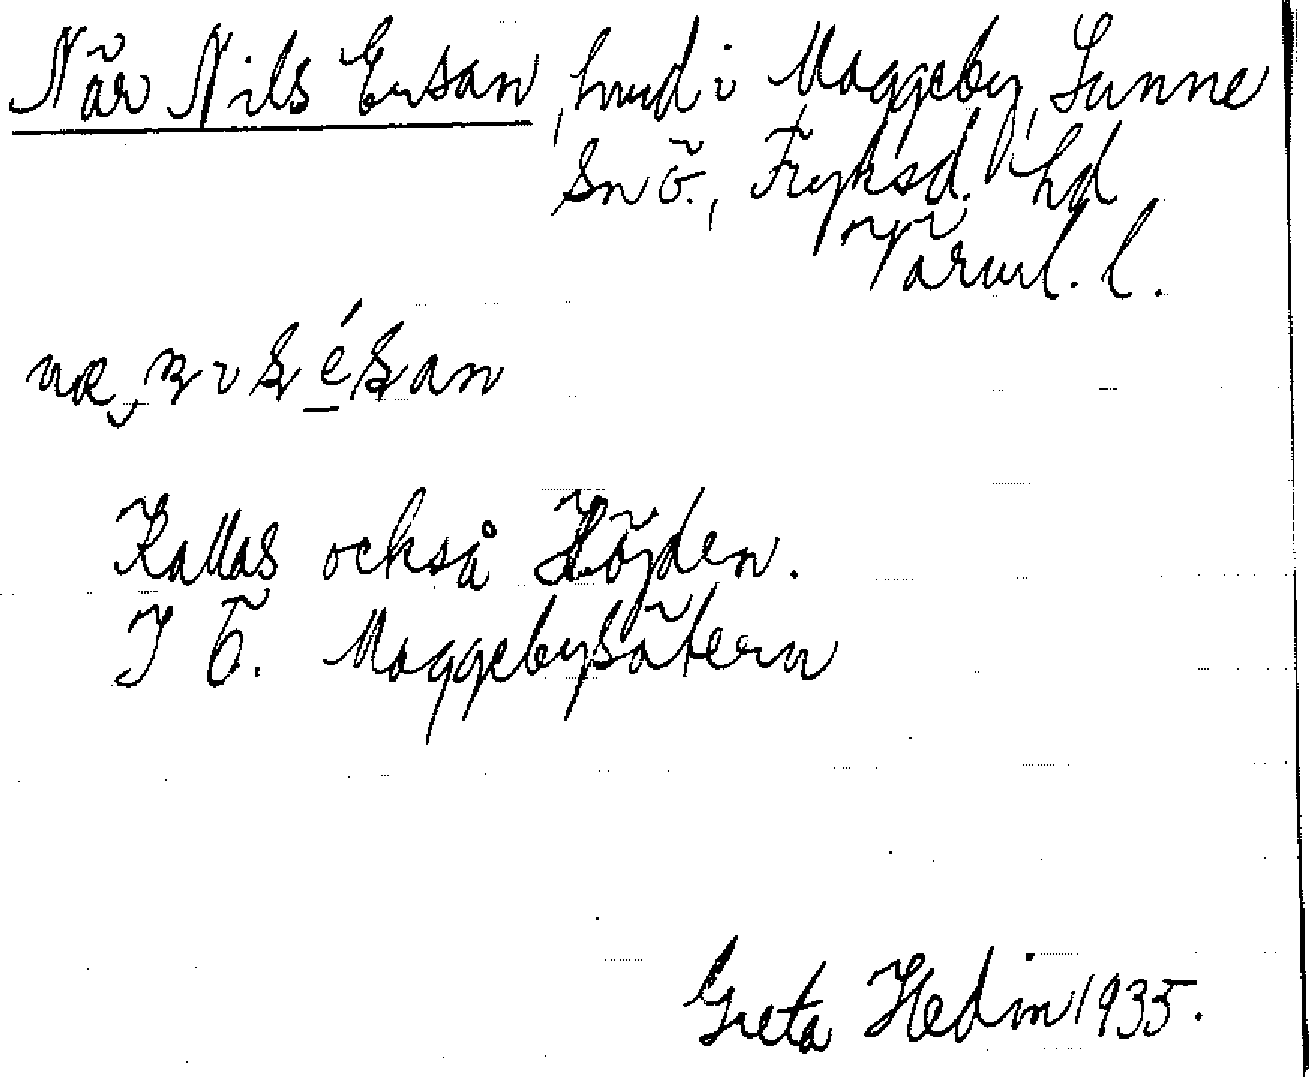 När Nils Ersan, hmd i Maggeby, Sunne
sn ö., Fryksd. hd
Värml. l.
Kallas också Höjden.
I ö. Maggebysätern
Greta Hedin 1935.